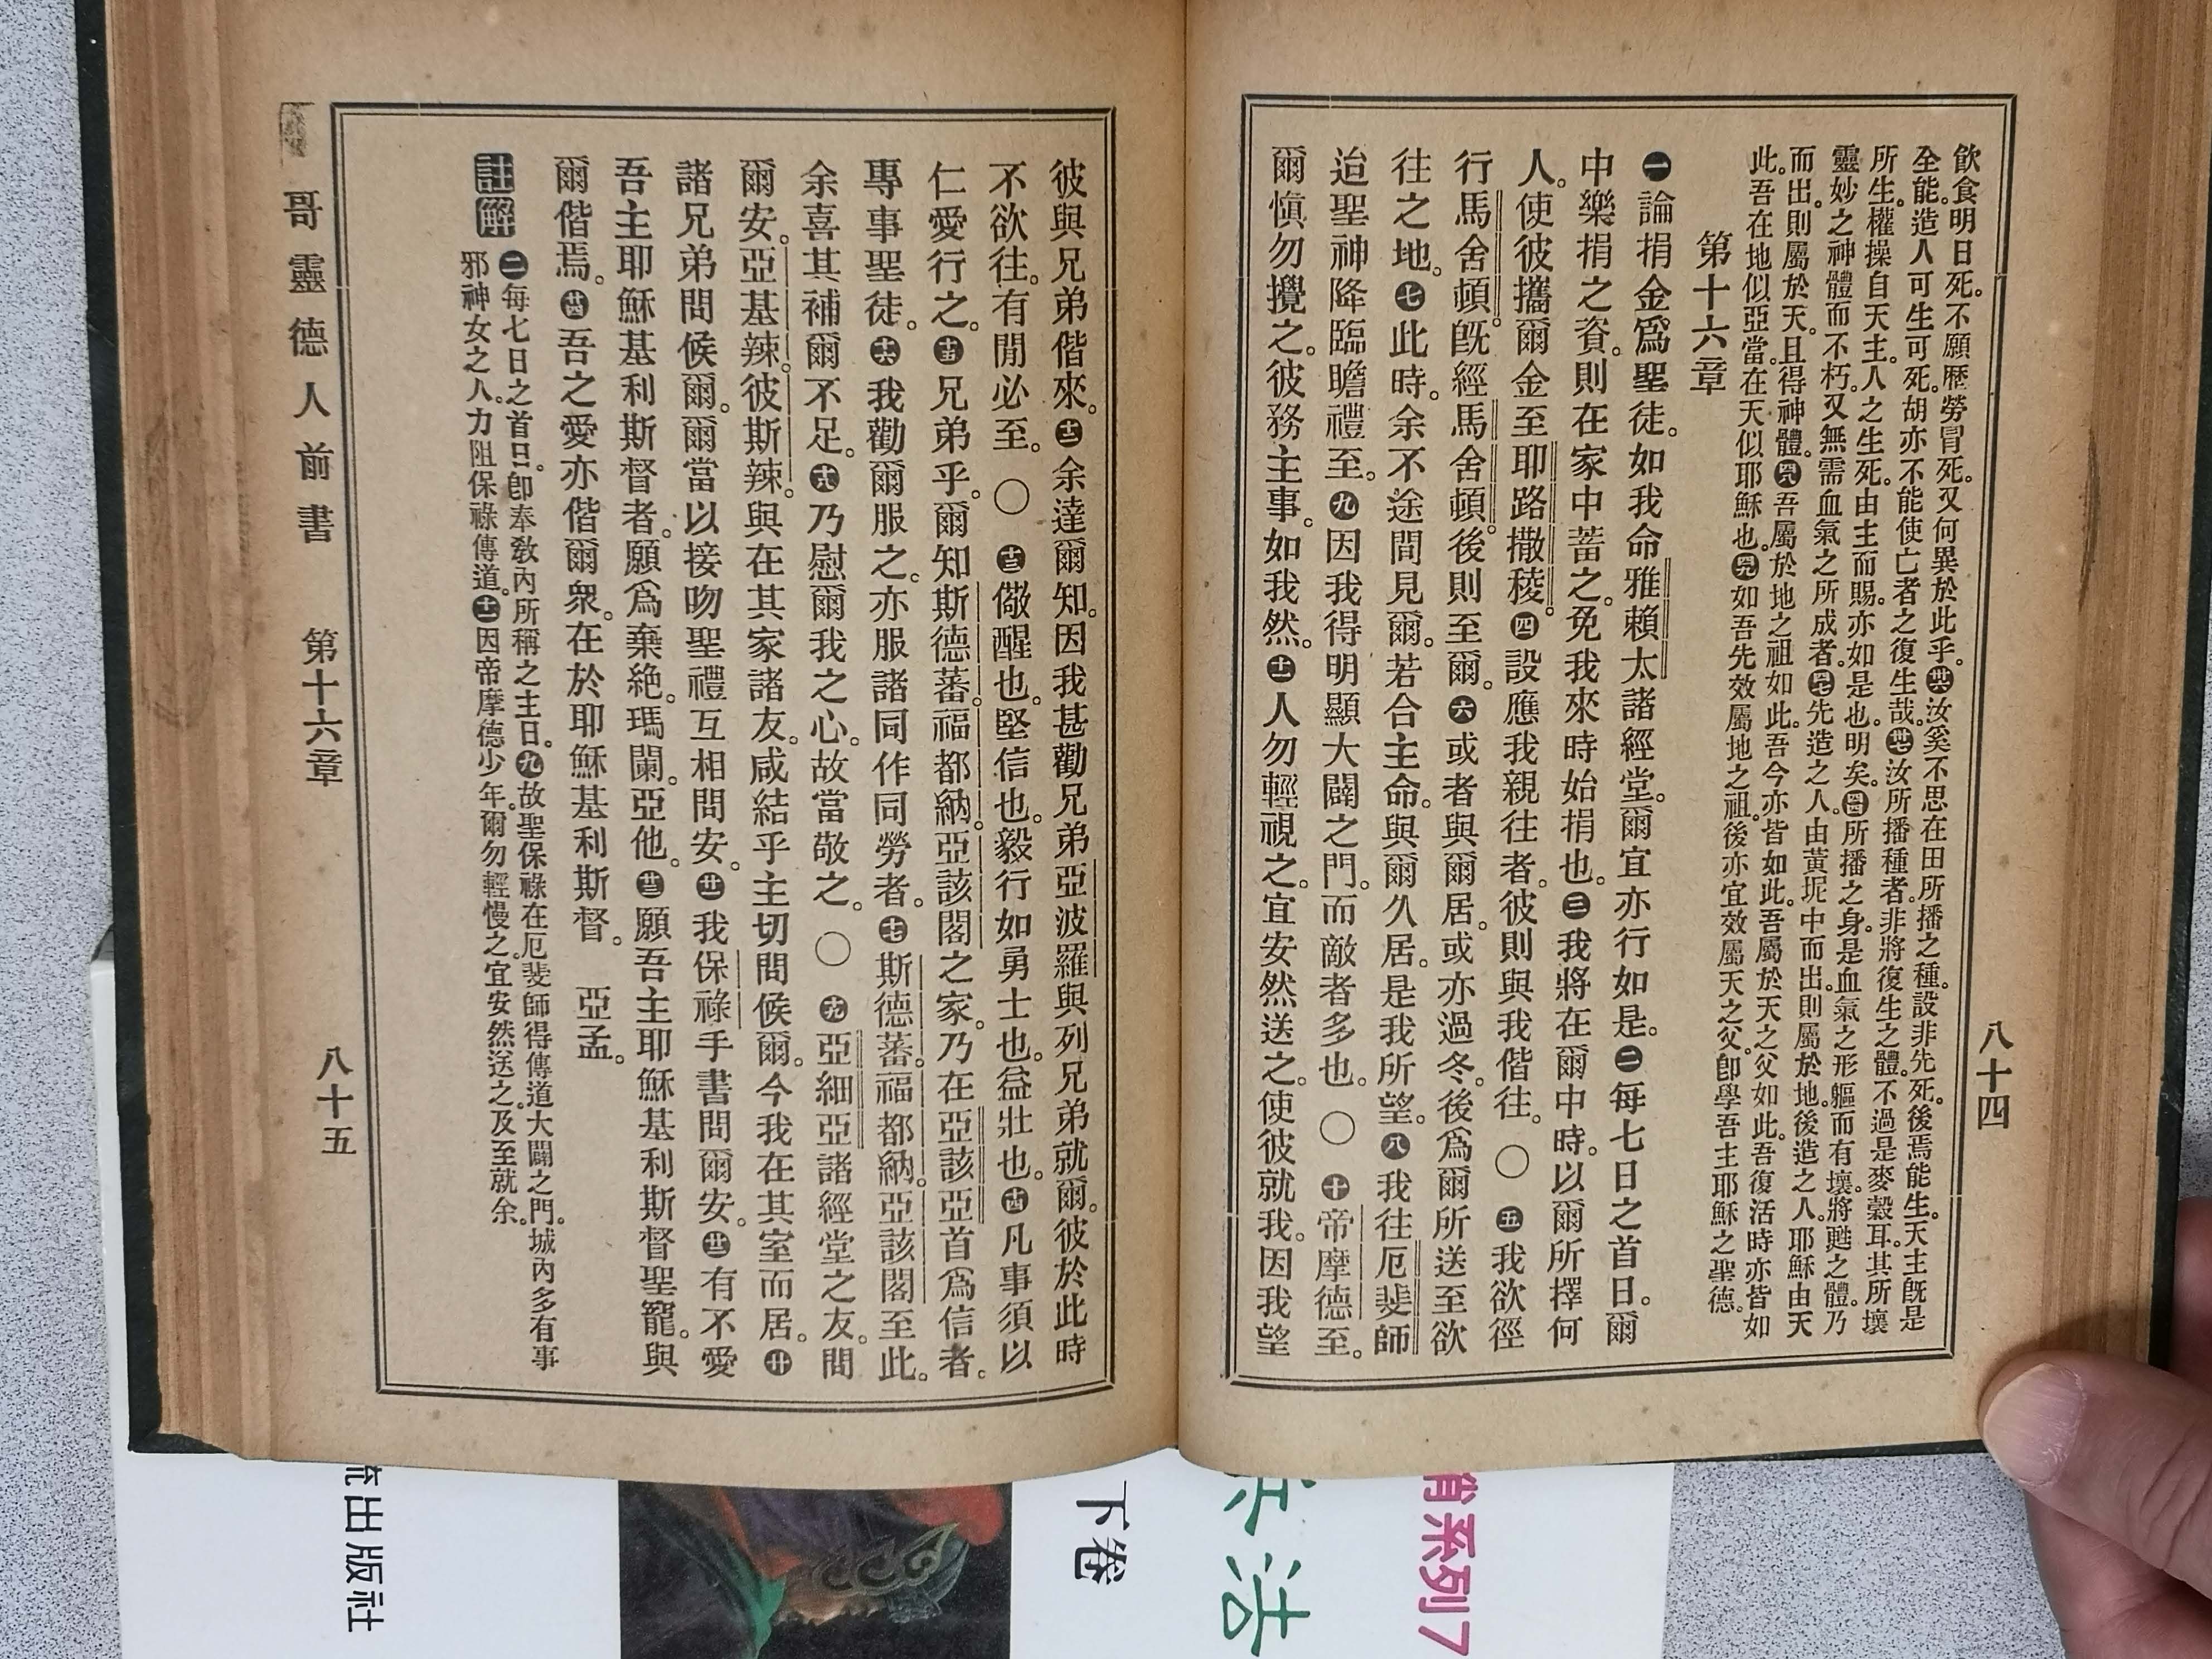 八十四
飮食明日死。不願歷勞冒死。又何異於此乎。㊱汝奚不思在田所播之種。設非先死。後焉能生。天主旣是
全能。造人可生可死。胡亦不能使亡者之復生哉。㊲汝所播種者。非將復生之體。不過是麥穀耳。其所壞
所生。權操自天主。人之生死。由主而賜。亦如是也。明矣。㊹所播之身。是血氣之形軀而有壞。將甦之體。乃
靈妙之神體而不朽。又無需血氣之所成者。㊼先造之人。由黃坭中而出。則屬於地。後造之人。耶穌由天
而出。則屬於天。且得神體。㊽吾屬於地之祖如此。吾今亦皆如此。吾屬於天之父如此。吾復活時亦皆如
此。吾在地似亞當。在天似耶穌也。㊾如吾先效屬地之祖。後亦宜效屬天之父。卽學吾主耶穌之聖德。
第十六章
一論捐金爲聖徒。如我命雅賴太諸經堂。爾宜亦行如是。二每七日之首日。爾
中樂捐之資。則在家中蓄之。免我來時始捐也。三我將在爾中時。以爾所擇何
人。使彼攜爾金至耶路撒稜。四設應我親往者。彼則與我偕往。〇五我欲徑
行馬舍頓。旣經馬舍頓。後則至爾。六或者與爾居。或亦過冬。後爲爾所送至欲
往之地。七此時。余不途間見爾。若合主命。與爾久居。是我所望。八我往厄斐師
迨聖神降臨瞻禮至。九因我得明顯大闢之門。而敵者多也。〇十帝摩德至。
爾愼勿攪之。彼務主事。如我然。十一人勿輕視之。宜安然送之。使彼就我。因我望
彼與兄弟偕來。十二余達爾知。因我甚勸兄弟亞波羅與列兄弟就爾。彼於此時
不欲往。有閒必至。〇十三儆醒也。堅信也。毅行如勇士也。益壯也。十四凡事須以
仁愛行之。十五兄弟乎。爾知斯德蕃。福都納。亞該閣之家。乃在亞該亞首爲信者。
專事聖徒。十六我勸爾服之。亦服諸同作同勞者。十七斯德蕃。福都納。亞該閣至此。
余喜其補爾不足。十八乃慰爾我之心。故當敬之。〇十九亞細亞諸經堂之友。問
爾安。亞基辣。彼斯辣。與在其家諸友。咸結乎主切問候爾。今我在其室而居。廿
諸兄弟問候爾。爾當以接吻聖禮互相問安。廿一我保祿手書問爾安。廿二有不愛
吾主耶穌基利斯督者。願爲棄絕。瑪闌。亞他。廿三願吾主耶穌基利斯督聖寵。與
爾偕焉。廿四吾之愛亦偕爾衆。在於耶穌基利斯督。亞孟。
註解 二每七日之首日。卽奉敎內所稱之主日。九故聖保祿在厄斐師得傳道大闢之門。城內多有事
邪神女之人。力阻保祿傳道。十一因帝摩德少年。爾勿輕慢之。宜安然送之。及至就余。
哥靈德人前書 第十六章 八十五
出版社
下卷
兵法
系列7